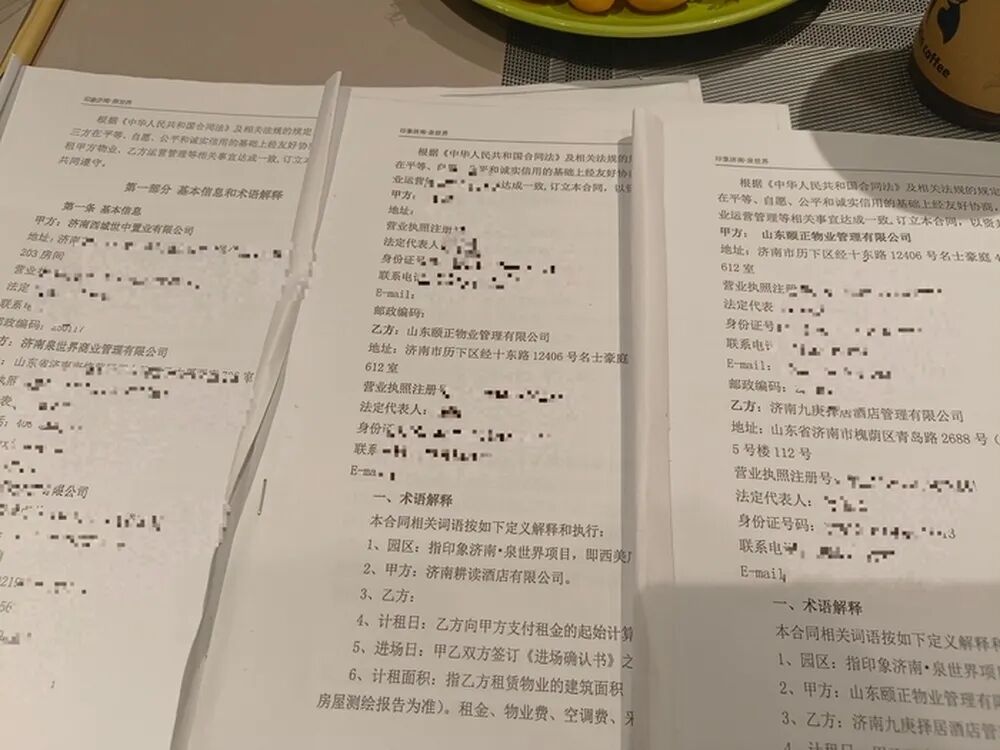 coffee
印象济南·泉世界
根据《中华人民共和国合同法》及相关法规的规定
三方在平等、自愿、公平和诚实信用的基础上经友好协
租甲方物业、乙方运营管理等相关事宜达成一致,订立本
共同遵守。
第一部分 基本信息和术语解释
第一条 基本信息
甲方:济南西城世中置业有限公司
地址:济南
203 房间
营业
法定
联系
邮政编码:
方:济南泉世界商业管理有限公司
:山东省济南
室
执照
表
有限公司
1
印象济南·泉世界
根据《中华人民共和国合同法》及相关法规的规
在平等、自愿、公平和诚实信用的基础上经友好协商
业运营管 达成一致,订立本合同,以
甲方:
地址:
营业执照注册
法定代表人
身份证号
联系电话
E-mail:
邮政编码:
乙方:山东颐正物业管理有限公司
地址:济南市历下区经十东路 12406 号名士豪庭
612 室
营业执照注册号
法定代表人:
身份证
联系
E-ma
一、术语解释
本合同相关词语按如下定义解释和执行:
1、园区:指印象济南·泉世界项目,即西美
2、甲方:济南耕读酒店有限公司。
3、乙方:
4、计租日:乙方向甲方支付租金的起始计算
5、进场日:甲乙双方签订《进场确认书》之
6、计租面积:指乙方租赁物业的建筑面积
房屋测绘报告为准)。租金、物业费、空调费、
印象济南·泉世界
根据《中华人民共和国合同法》及相关法规的规
在平等、自愿、公平和诚实信用的基础上经友好协商,
业运营管理等相关事宜达成一致,订立本合同,以资
甲方:山东颐正物业管理有限公司
地址:济南市历下区经十东路 12406 号名士豪庭 4
612 室
营业执照注册
法定代表
身份证号
联系电话
E-mail:
邮政编码:
乙方:济南九庚择居酒店管理有限公司
地址:山东省济南市槐荫区青岛路 2688 号(
5 号楼 112 号
营业执照注册号
法定代表人:
身份证号码:
联系电
E-mail
一、术语解释
本合同相关词语按如下定义解释和
1、园区:指印象济南·泉世界项
2、甲方:山东颐正物业管理有限
3、乙方:济南九庚择居酒店管
4、计租日